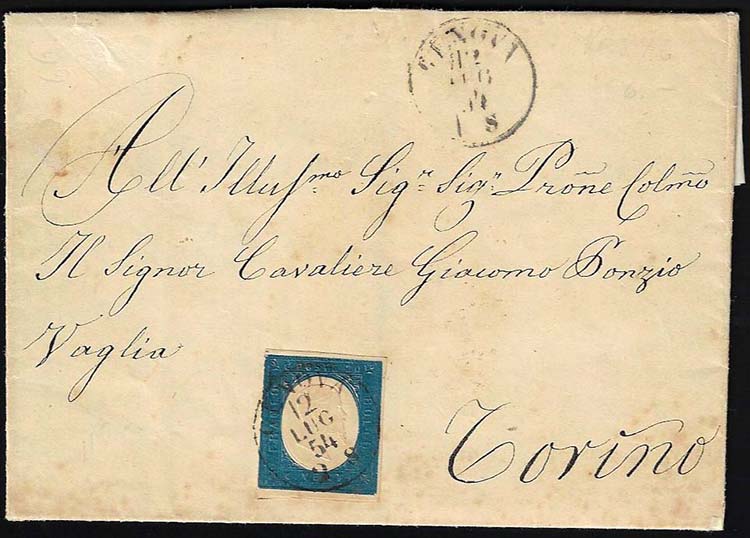 GENOVA
12
LUG
54
1 S
All' Illus.mo Sig.r Sig.r Prone Colmo
Il Signor Cavaliere Giacomo Ponzio
Vaglia
12
LUG
54
Torino